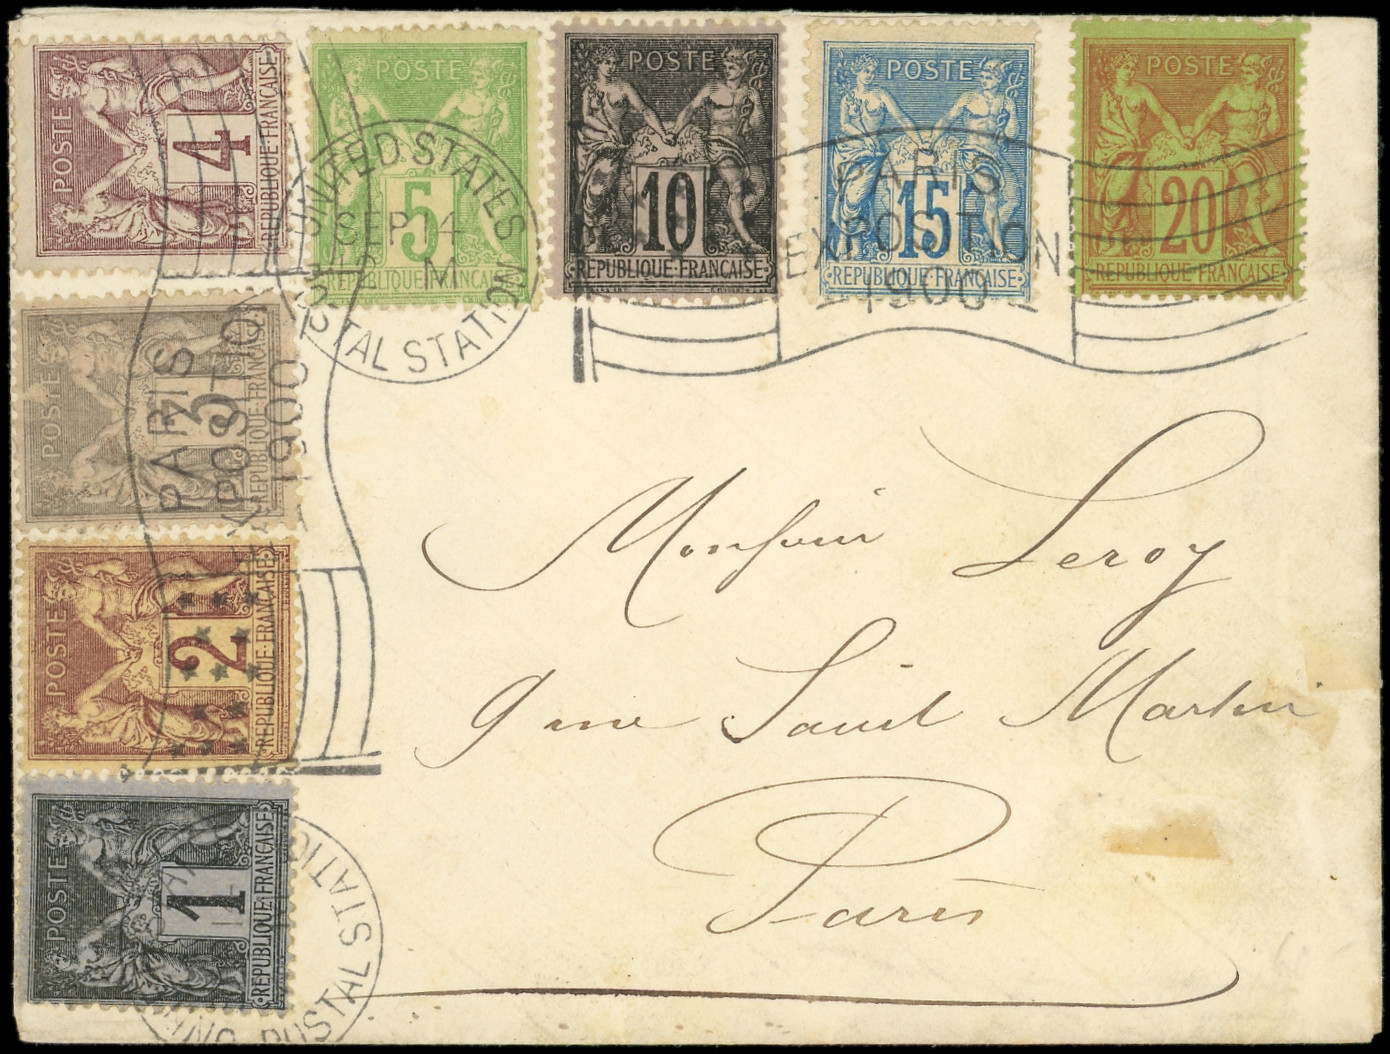 POSTE
4
REPUBLIQUE·FRANÇAISE
POSTE
5
REPUBLIQUE·FRANÇAISE
POSTE
10
REPUBLIQUE·FRANÇAISE
POSTE
15
REPUBLIQUE·FRANÇAISE
POSTE
20
REPUBLIQUE·FRANÇAISE
UNITED STATES
SEP 14
M
POSTAL STATION
PARIS
EXPOSITION
1900
POSTE
3
REPUBLIQUE·FRANÇAISE
PARIS
EXPOSITION
1900
POSTE
2
REPUBLIQUE·FRANÇAISE
POSTE
1
REPUBLIQUE·FRANÇAISE
POSTAL STATIO
Monsieur Leroy
9 rue Saint Martin
Paris